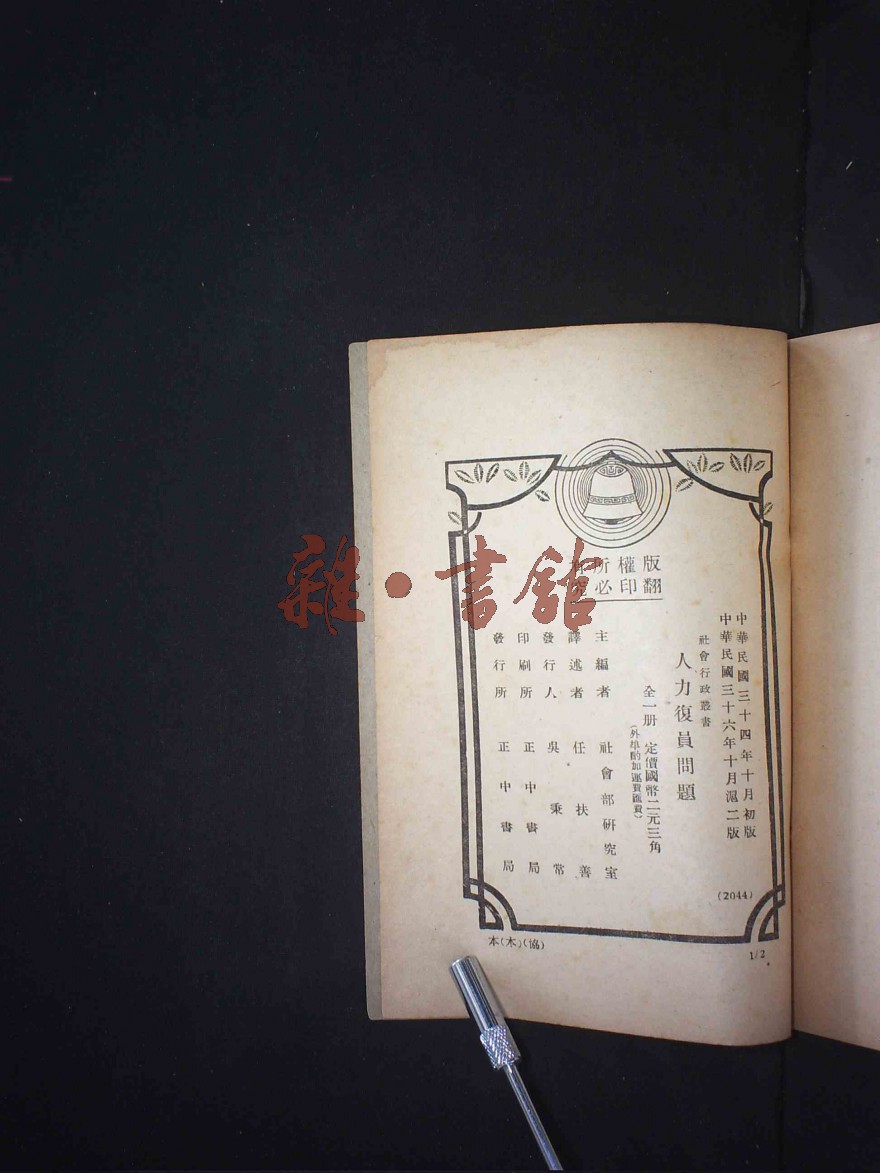 版權所有
翻印必究
中華民國三十四年十月初版
中華民國三十六年十月滬二版
社會行政叢書
人力復員問題
(2044)
全一册 定價國幣二元三角
(外埠酌加運費匯費)
主編者 社會部研究室
譯述者 任扶善
發行人 吳秉常
印刷所 正中書局
發行所 正中書局
本(木)(協)
1/2
雜·書館